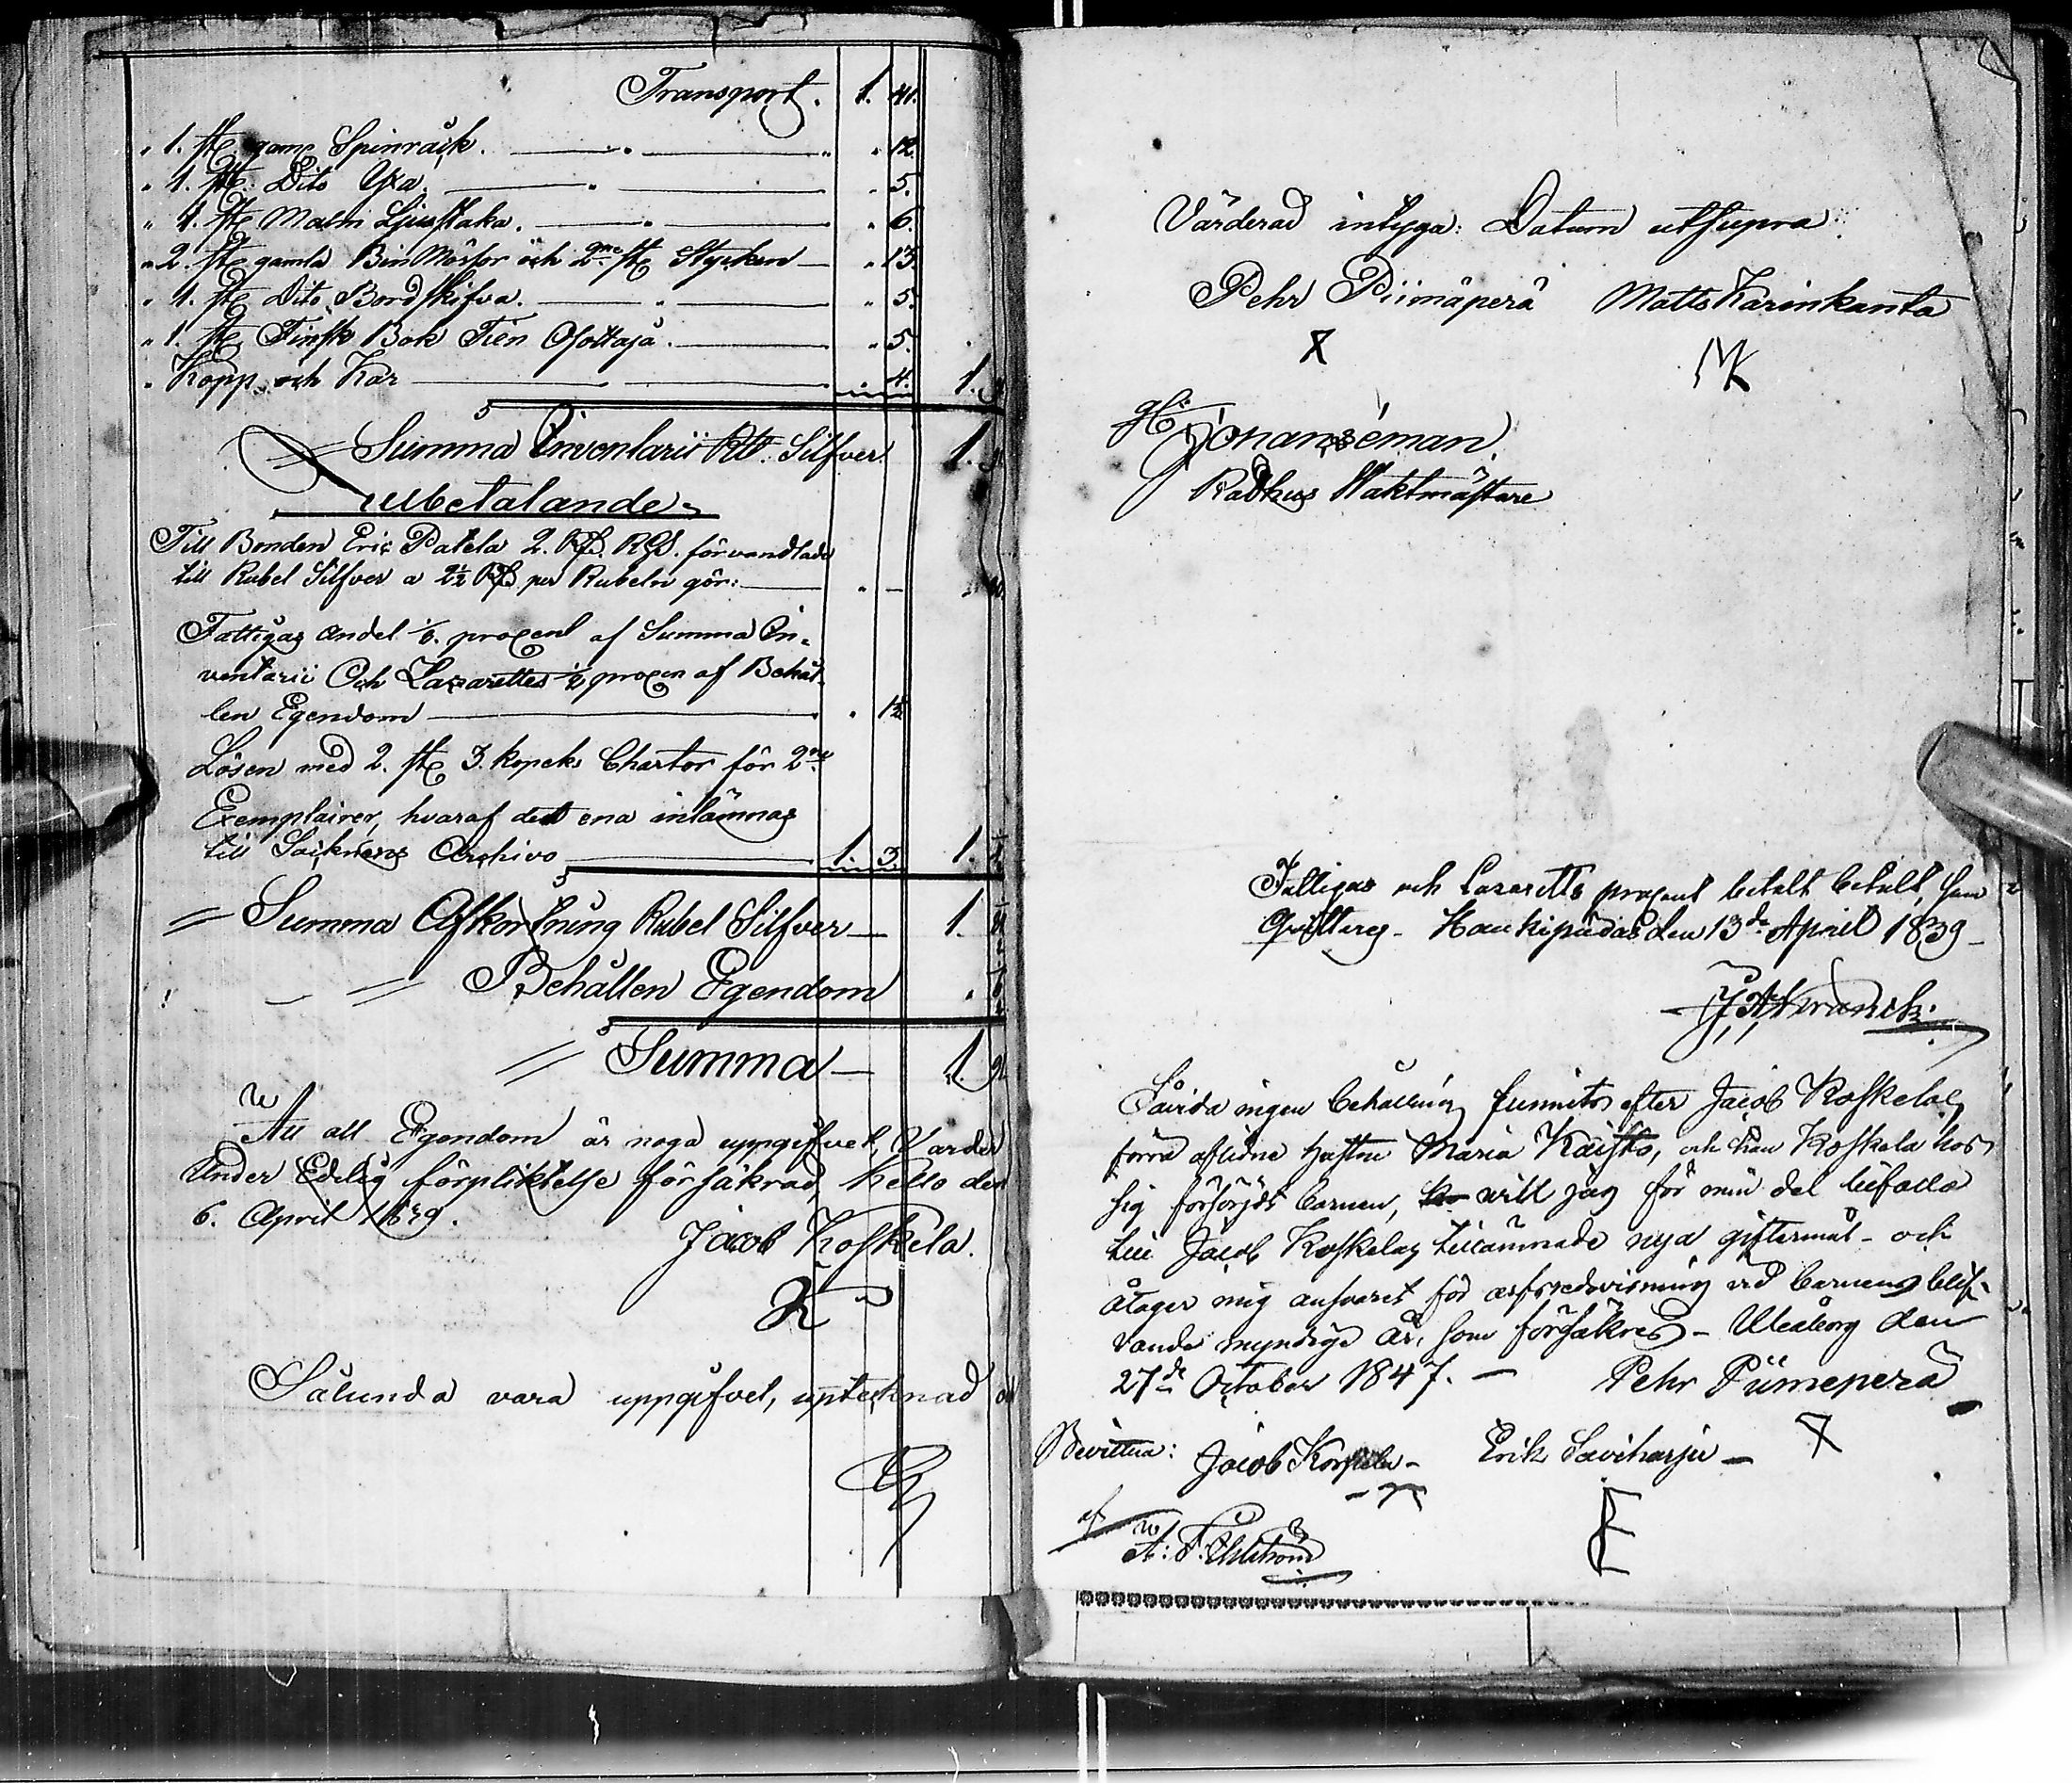 Transport. 1. 41.
" 1. st. gam. Spinråck. " " 12.
" 1. st. Dito Yxa. " " 5.
" 1. st. Malm Ljusstaka. " " 6.
" 2. st. gamla Bin Mössor och 2ne st. Stycken " 13.
" 1. st. Dito Bordskifva. " " 5.
" 1. st. Finsk Bok Tien Osottaja. " 5.
" Kopp och Kar " 4. 1.
Summa Inventarii Rbl. Silfver. 1.
Afbetalande
Till Bonden Eric Patela 2. Rd. RGS. förvandlade
till Rubel Silfver a 2½ Rd. per Rubeln gör:
Fattigas andel 1/8. procent af Summa In-
ventarii Och Lazarettes ½ procen af Behål-
len Egendom " 1½
Lösen med 2. st. 3. kopeks Chartor för 2ne
Exemplairer, hvaraf det ena inlämnas
till Socknens Archivo 1. 3. 1.
Summa Afkortnung Rubel Silfver 1.
Behållen Egendom
Summa 1.
Att all Egendom är noga uppgifvet, Varder
Under Edelig förpliktelse försäkrad, Kello den
6. April 1839.
Jacob Koskela.
Sålunda vara uppgifvet, uptecknad
Värderad intyga: Datum utsupra
Pehr Piimäperä Matts Karinkanta
X MK
Rådhus Waktmästare
Fattigas och Lazaretts procent betalt betalt, som
qvitteras. Haukipudas den 13de April 1839
Såvida ingen behållning funnits efter Jacob Koskelas
förra aflidne hustru Maria Kaisto, och han Koskela hos
sig försörjdt barnen, will jag för min del bifalla
till Jacob Koskelas tillämnade nya giftermål - och
åtager mig ansvaret för arfsredovisning vid barnens blif-
vande myndige år, som försäkras - Uleåborg den
27de October 1847. - Pehr Piimeperä
X
Bevittna: Jacob Korpela - Erik Saviharju -
af